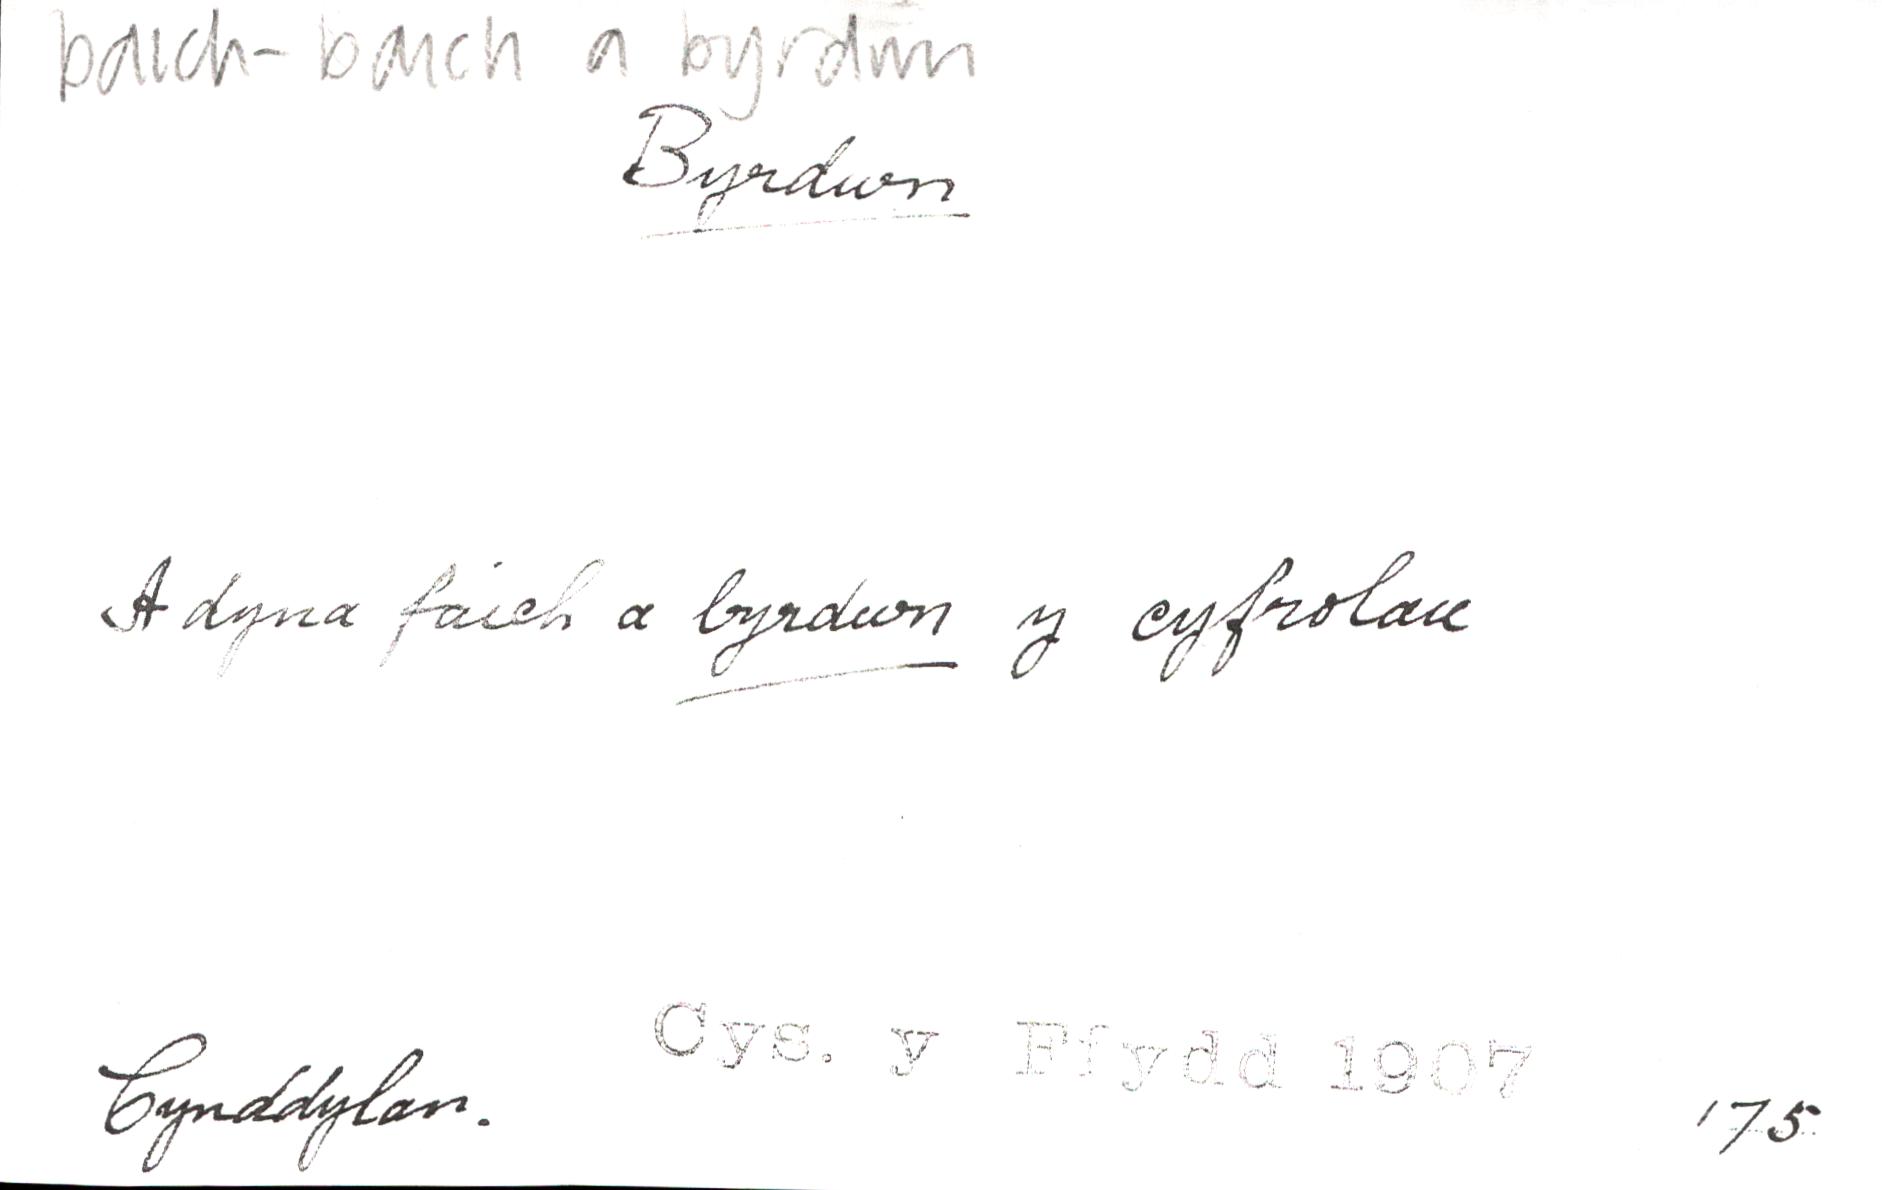 baich - baich a byrdwn
Byrdwn
A dyna faich a byrdwn y cyfrolau
Cynddylan. Cys. y Ffydd 1907 175